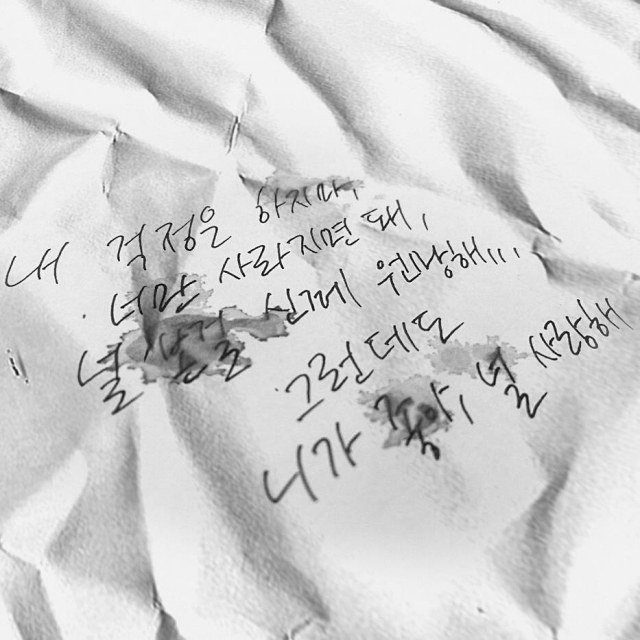 내 걱정은 하지마,
너만 사라지면 돼,
널 신께 원망해,,,
그런데도
니가 좋아, 널 사랑해